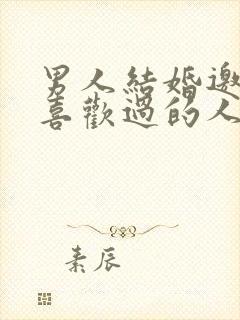 男人結婚邀
喜歡過的人
素辰